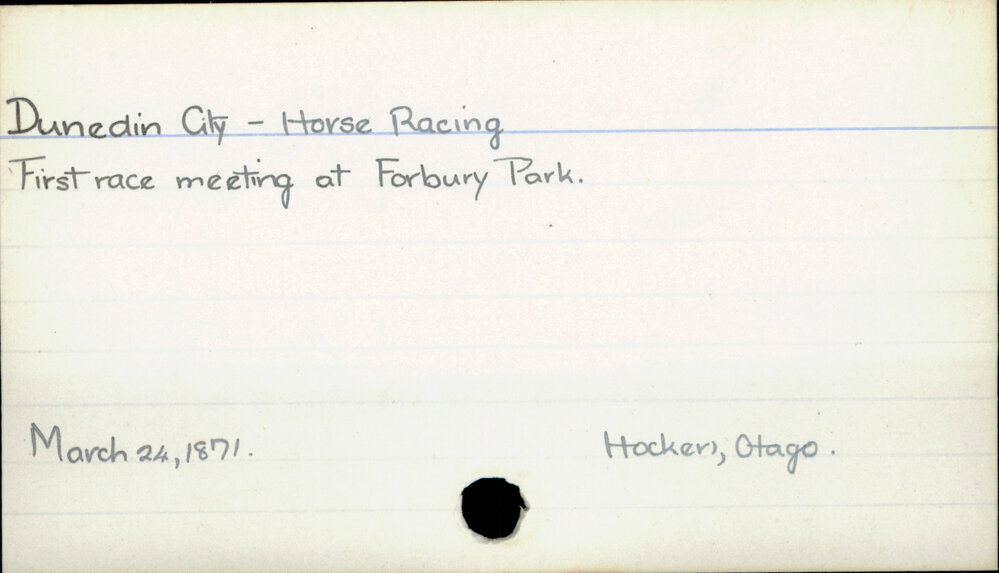 Dunedin City - Horse Racing
First race meeting at Forbury Park.
March 24, 1871.
Hocken, Otago.